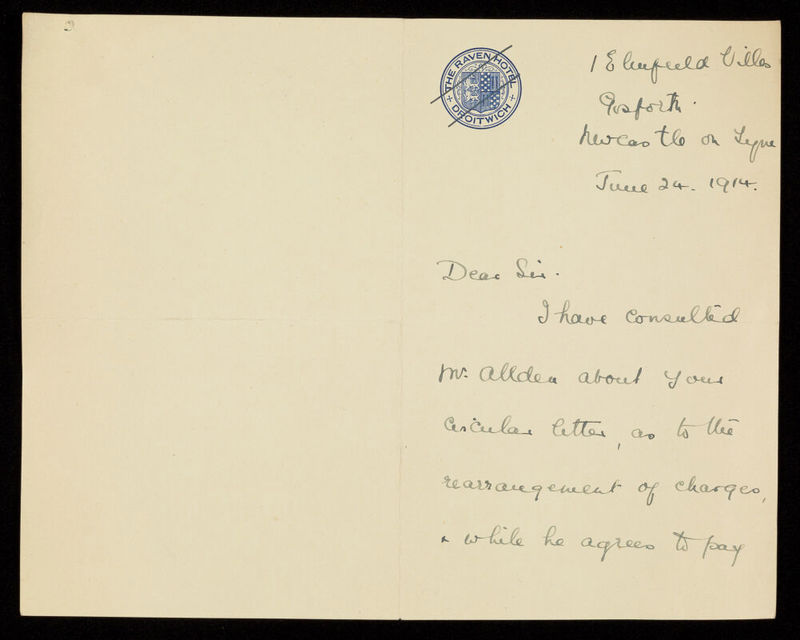 THE RAVEN HOTEL
DROITWICH
1 Elmfield Villas
Gosforth.
Newcastle on Tyne
June 24. 1914.
Dear Sir.
I have consulted
Mr. Allden about your
circular letter, as to the
rearrangement of charges,
& while he agrees to pay